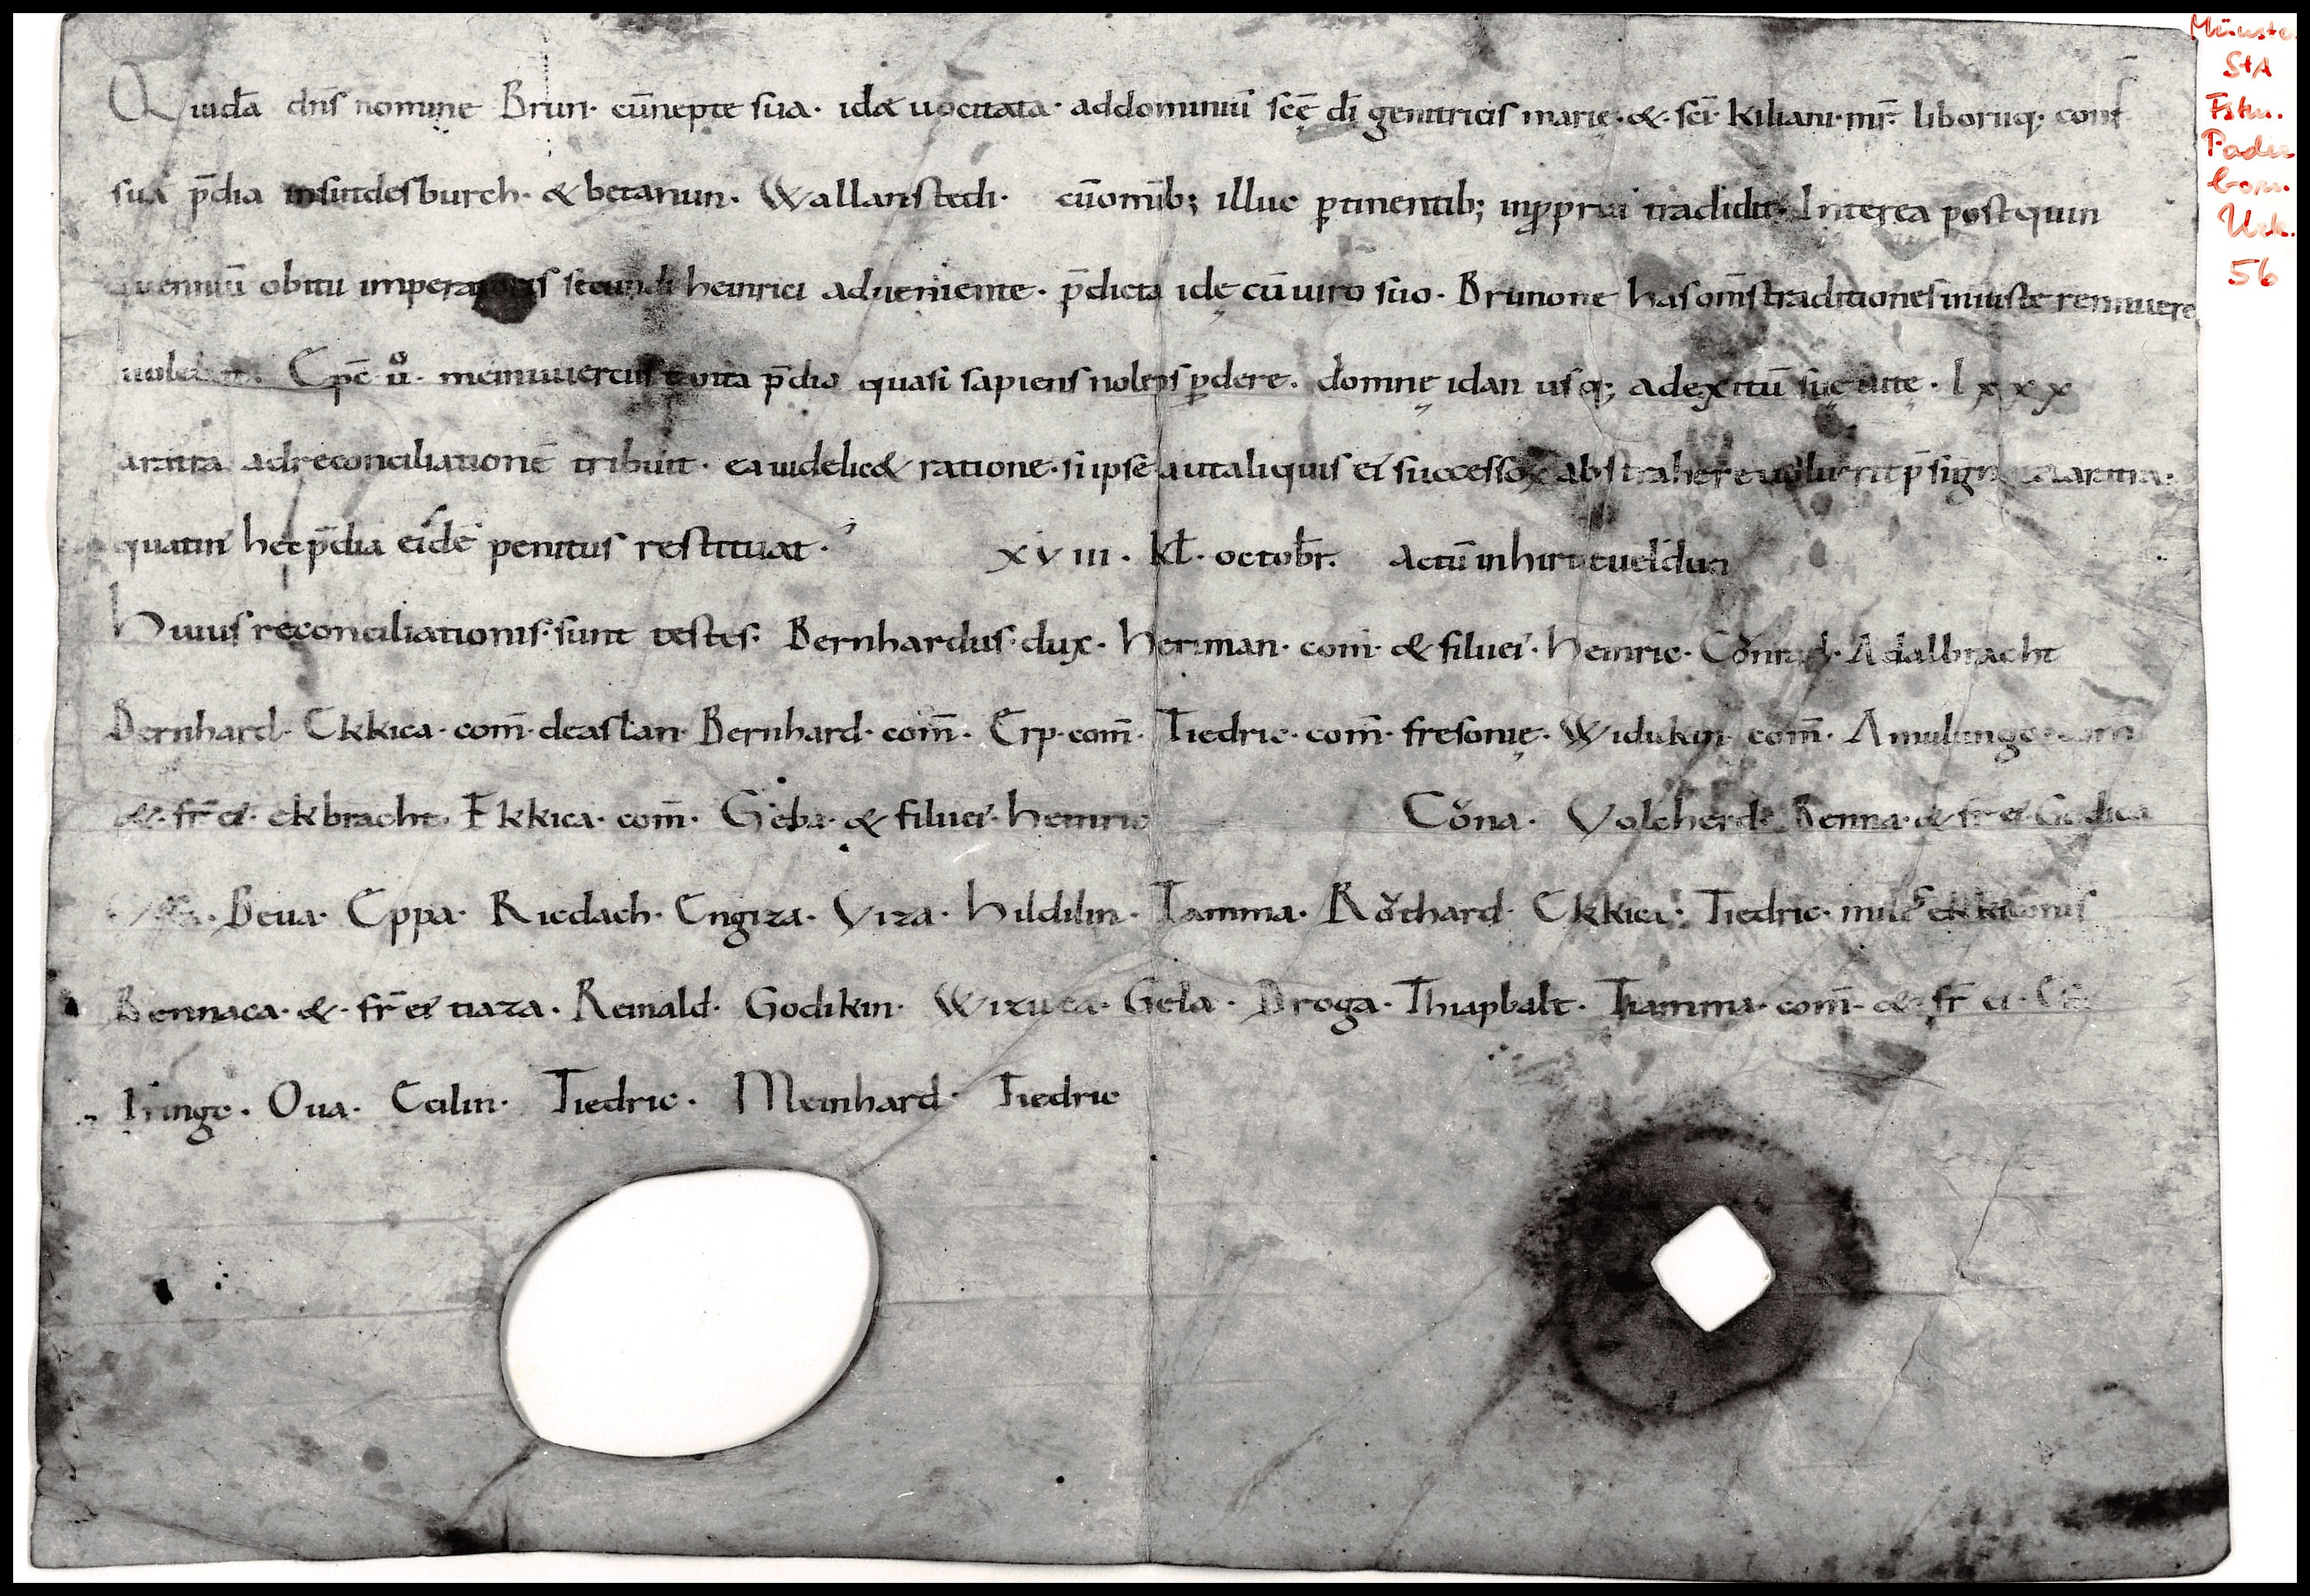 Quidā dn̄s nomine Brun· cū nepte sua· ida uocitata· ad dominiū sc̄ę dī genitricis marię· & sc̄i kiliani· mr̄· liboriiq; conf̄
sua p̄dia in sindesburch· & betanun· Wallanstedi· cū omīb; illuc ꝑtinentib; in ꝓpriū tradidit· Interea post quin
quenniū obitu imperatoris secundi heinrici adueniente· p̄dicta idę cū uiro suo· Brunone has om̄s traditiones iniuste rennuere
Ep̄c ů· meinuuercus p̄dia quasi sapiens nolens ꝑdere· domnę idan usq; ad exitū suę uitę· lxxx
aratra ad reconciliationē tribuit· ea uidelic& ratione· si ipse aut aliquis ei' successor abstrahere uoluerit p̄signata aratra·
quatin' hec p̄dia eidē penitus restituat· xviii· kl̄· octobr̄· Actū in hirutueldun
Huius reconciliationis· sunt testes· Bernhardus· dux· Heriman· com̄· & filii ei'· Heinric· Cŏnrad· Adalbracht
Bernhard· Ekkica· com̄· de aslan· Bernhard· com̄· Erp· com̄· Tiedric· com̄· fresonię· Widukin com̄· Amulungc· com̄
& fr̄ ei'· ekbracht· Ekkica· com̄· Geba· & filii ei'· Heinric Cŏna· Volcherd· Benna· & fr̄ ei'· Godica
Beua· Eppa· Ricdach· Engiza· Viza· Hildilin· Tamma· Rŏthard· Ekkica· Tiedric· mil' ekkiconis
Bennaca· & fr̄ ei' tiaza· Reinald· Godikin· Wixuca· Gela· Droga· Thiapbalt· Tiamma· com̄· & fr̄ ei'·
Iringc· Oua· Ceilin· Tiedric· Meinhard· Tiedric
Münster
StA
Fstm.
Pader
born.
Urk.
56